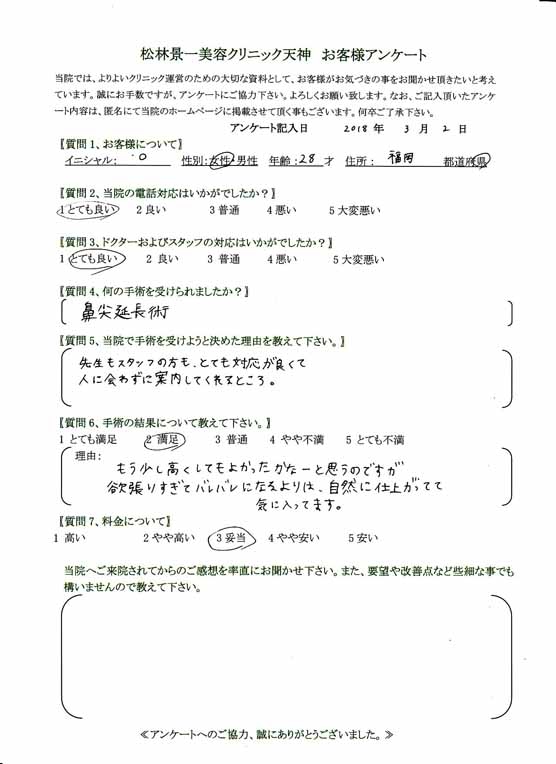 松林景一美容クリニック天神 お客様アンケート
当院では、よりよいクリニック運営のための大切な資料として、お客様がお気づきの事をお聞かせ頂きたいと考え
ています。誠にお手数ですが、アンケートにご協力下さい。よろしくお願い致します。なお、ご記入頂いたアンケ
ート内容は、匿名にて当院のホームページに掲載させて頂く事もございます。何卒ご了承下さい。
アンケート記入日 2018 年 3 月 2 日
【質問1、お客様について】
イニシャル: O 性別:女性・男性 年齢:28才 住所: 福岡 都道府県
【質問2、当院の電話対応はいかがでしたか？】
1とても良い 2良い 3普通 4悪い 5大変悪い
【質問3、ドクターおよびスタッフの対応はいかがでしたか？】
1とても良い 2良い 3普通 4悪い 5大変悪い
【質問4、何の手術を受けられましたか？】
鼻尖延長術
【質問5、当院で手術を受けようと決めた理由を教えて下さい。】
先生もスタッフの方も、とても対応が良くて
人に会わずに案内してくれるところ。
【質問6、手術の結果について教えて下さい。】
1とても満足 2満足 3普通 4やや不満 5とても不満
理由:
もう少し高くしてもよかったかなーと思うのですが
欲張りすぎてバレバレになるよりは、自然に仕上がってて
気に入ってます。
【質問7、料金について】
1高い 2やや高い 3妥当 4やや安い 5安い
当院へご来院されてからのご感想を率直にお聞かせ下さい。また、要望や改善点など些細な事でも
構いませんので教えて下さい。
≪アンケートへのご協力、誠にありがとうございました。≫